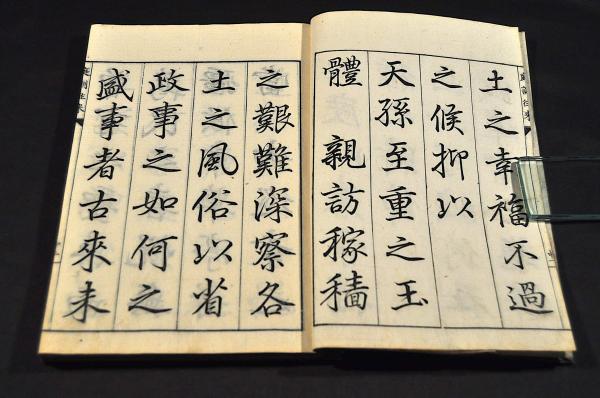 土之幸福不過
之候抑以
天孫至重之玉
體　親訪稼穡
之艱難深察各
土之風俗以省
政事之如何之
盛事者古來未